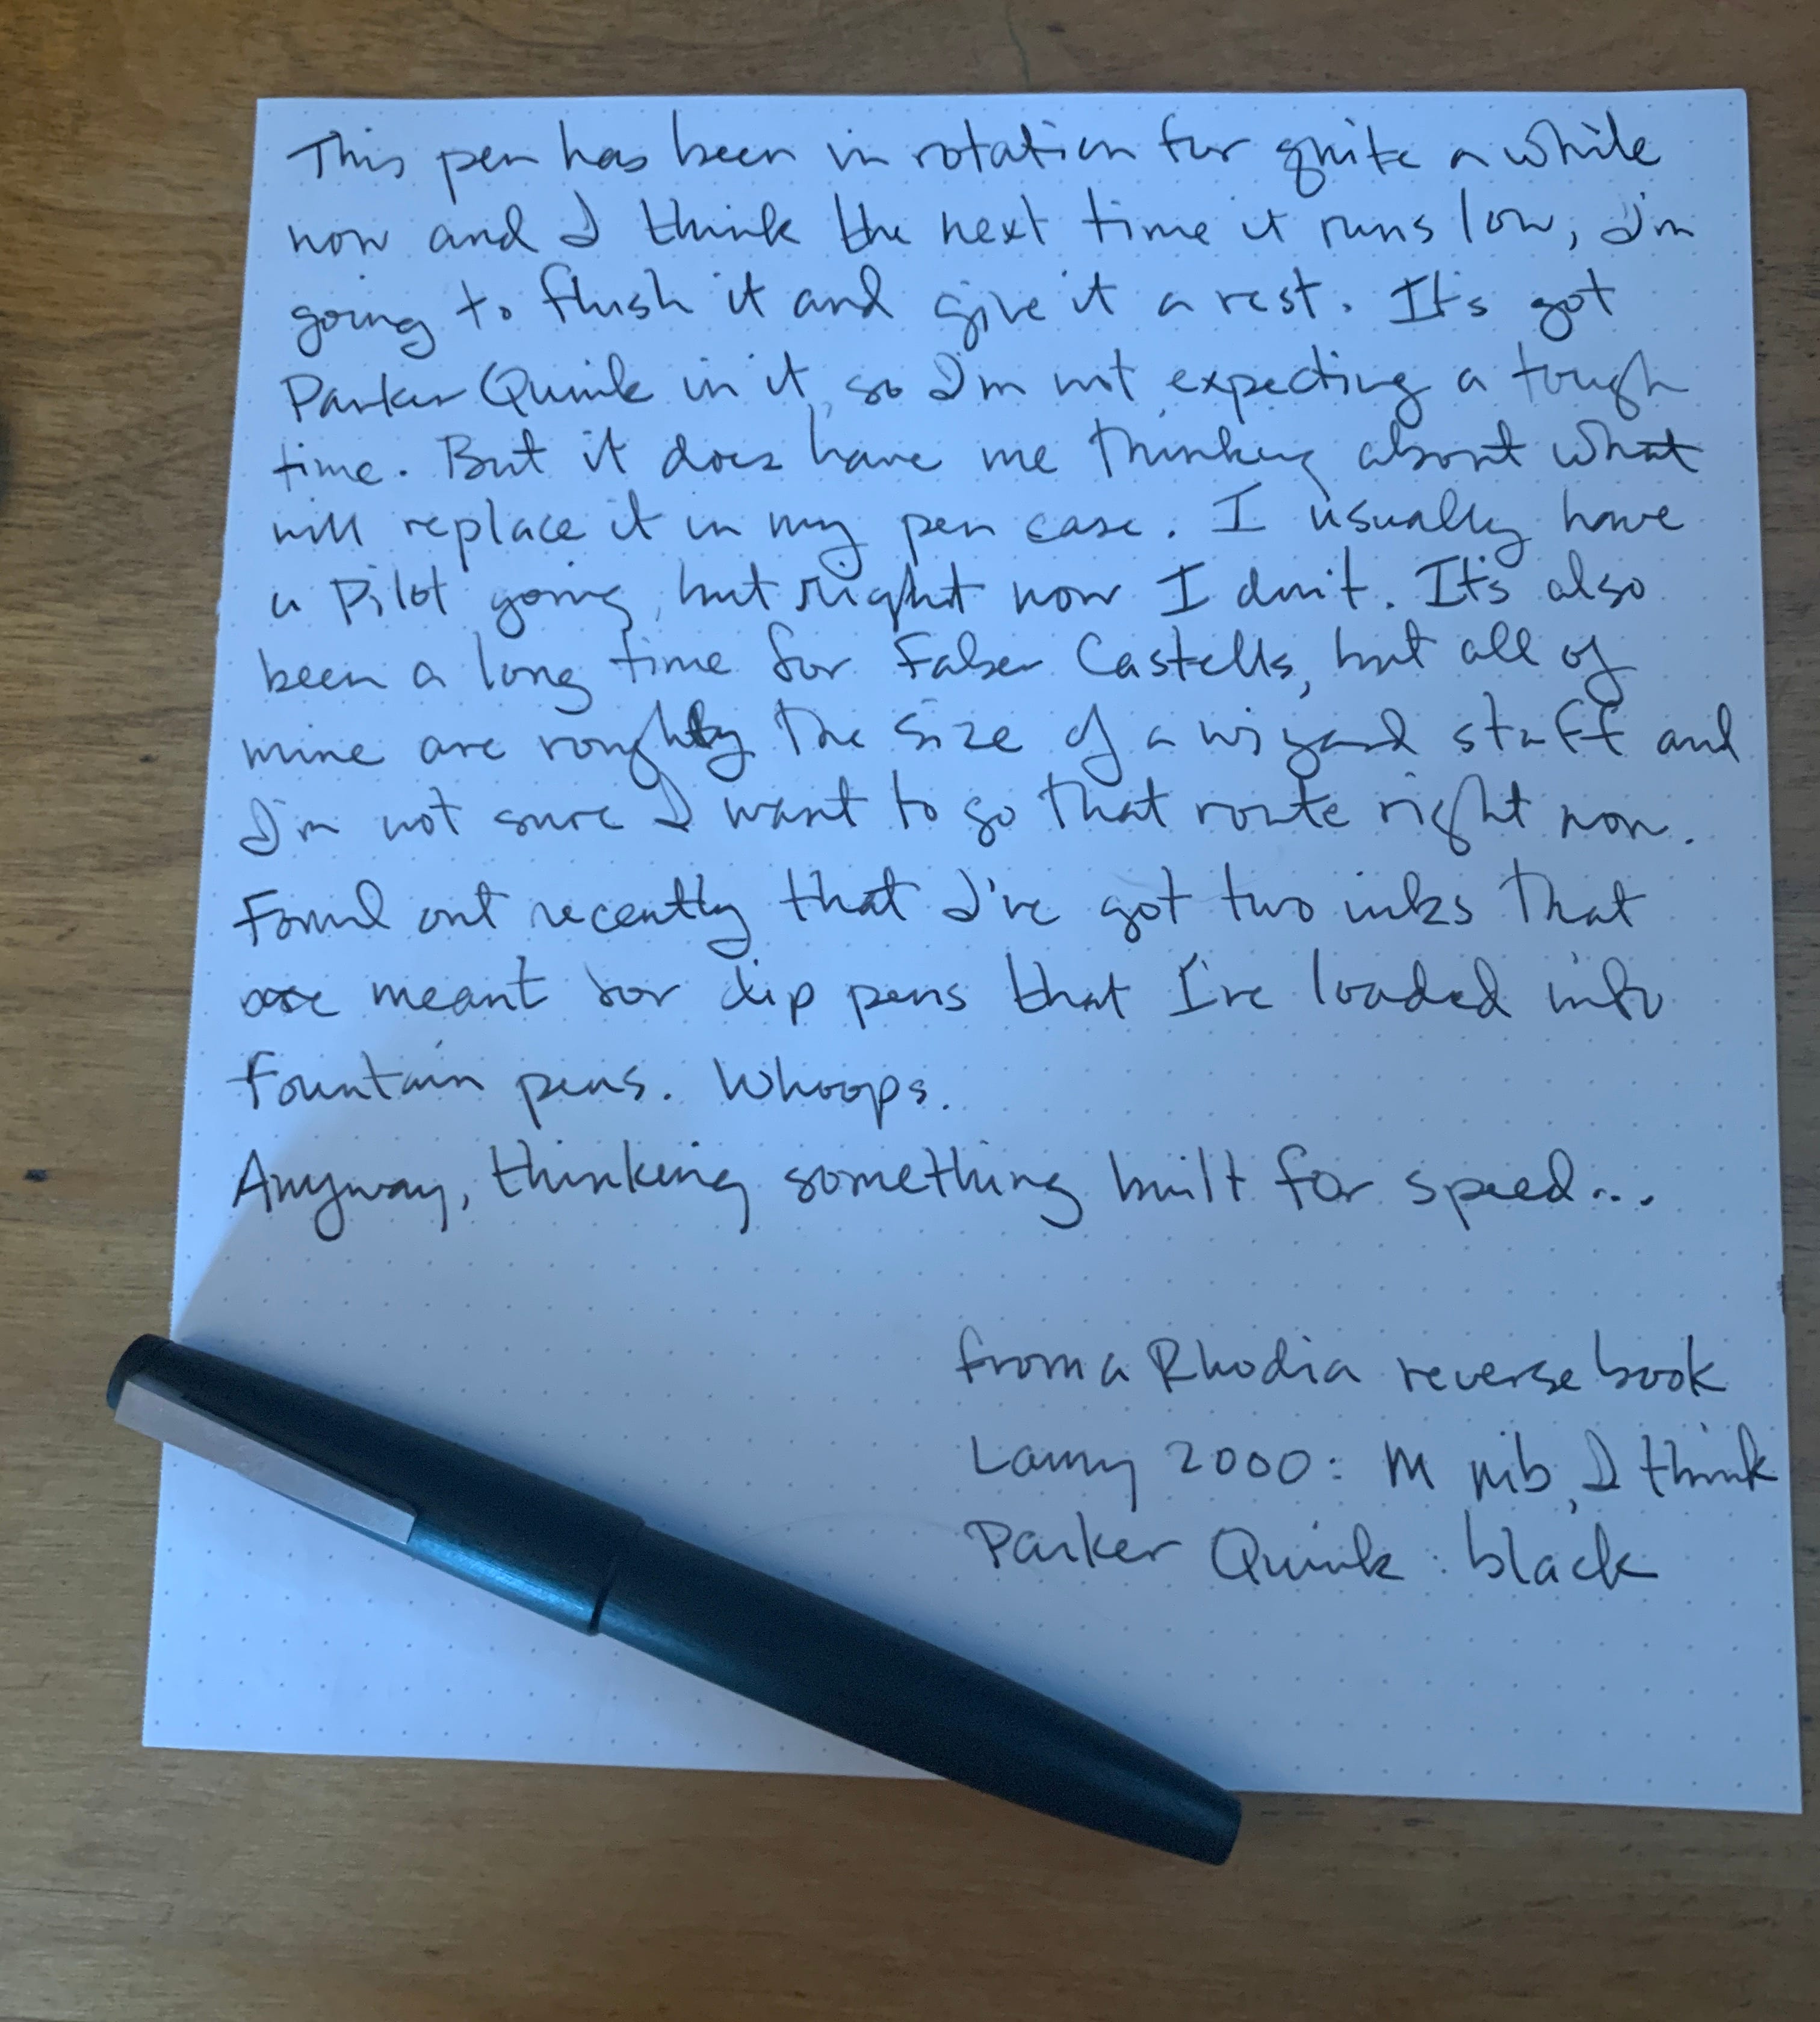 This pen has been in rotation for quite a while
now and I think the next time it runs low, I'm
going to flush it and give it a rest. It's got
Parker Quink in it, so I'm not expecting a tough
time. But it does have me thinking about what
will replace it in my pen case. I usually have
a Pilot going, but right now I don't. It's also
been a long time for Faber Castells, but all of
mine are roughly the size of a wizard staff and
I'm not sure I want to go that route right now.
Found out recently that I've got two inks that
are meant for dip pens that I've loaded into
fountain pens. Whoops.
Anyway, thinking something built for speed...
from a Rhodia reverse book
Lamy 2000: M nib, I think
Parker Quink: black